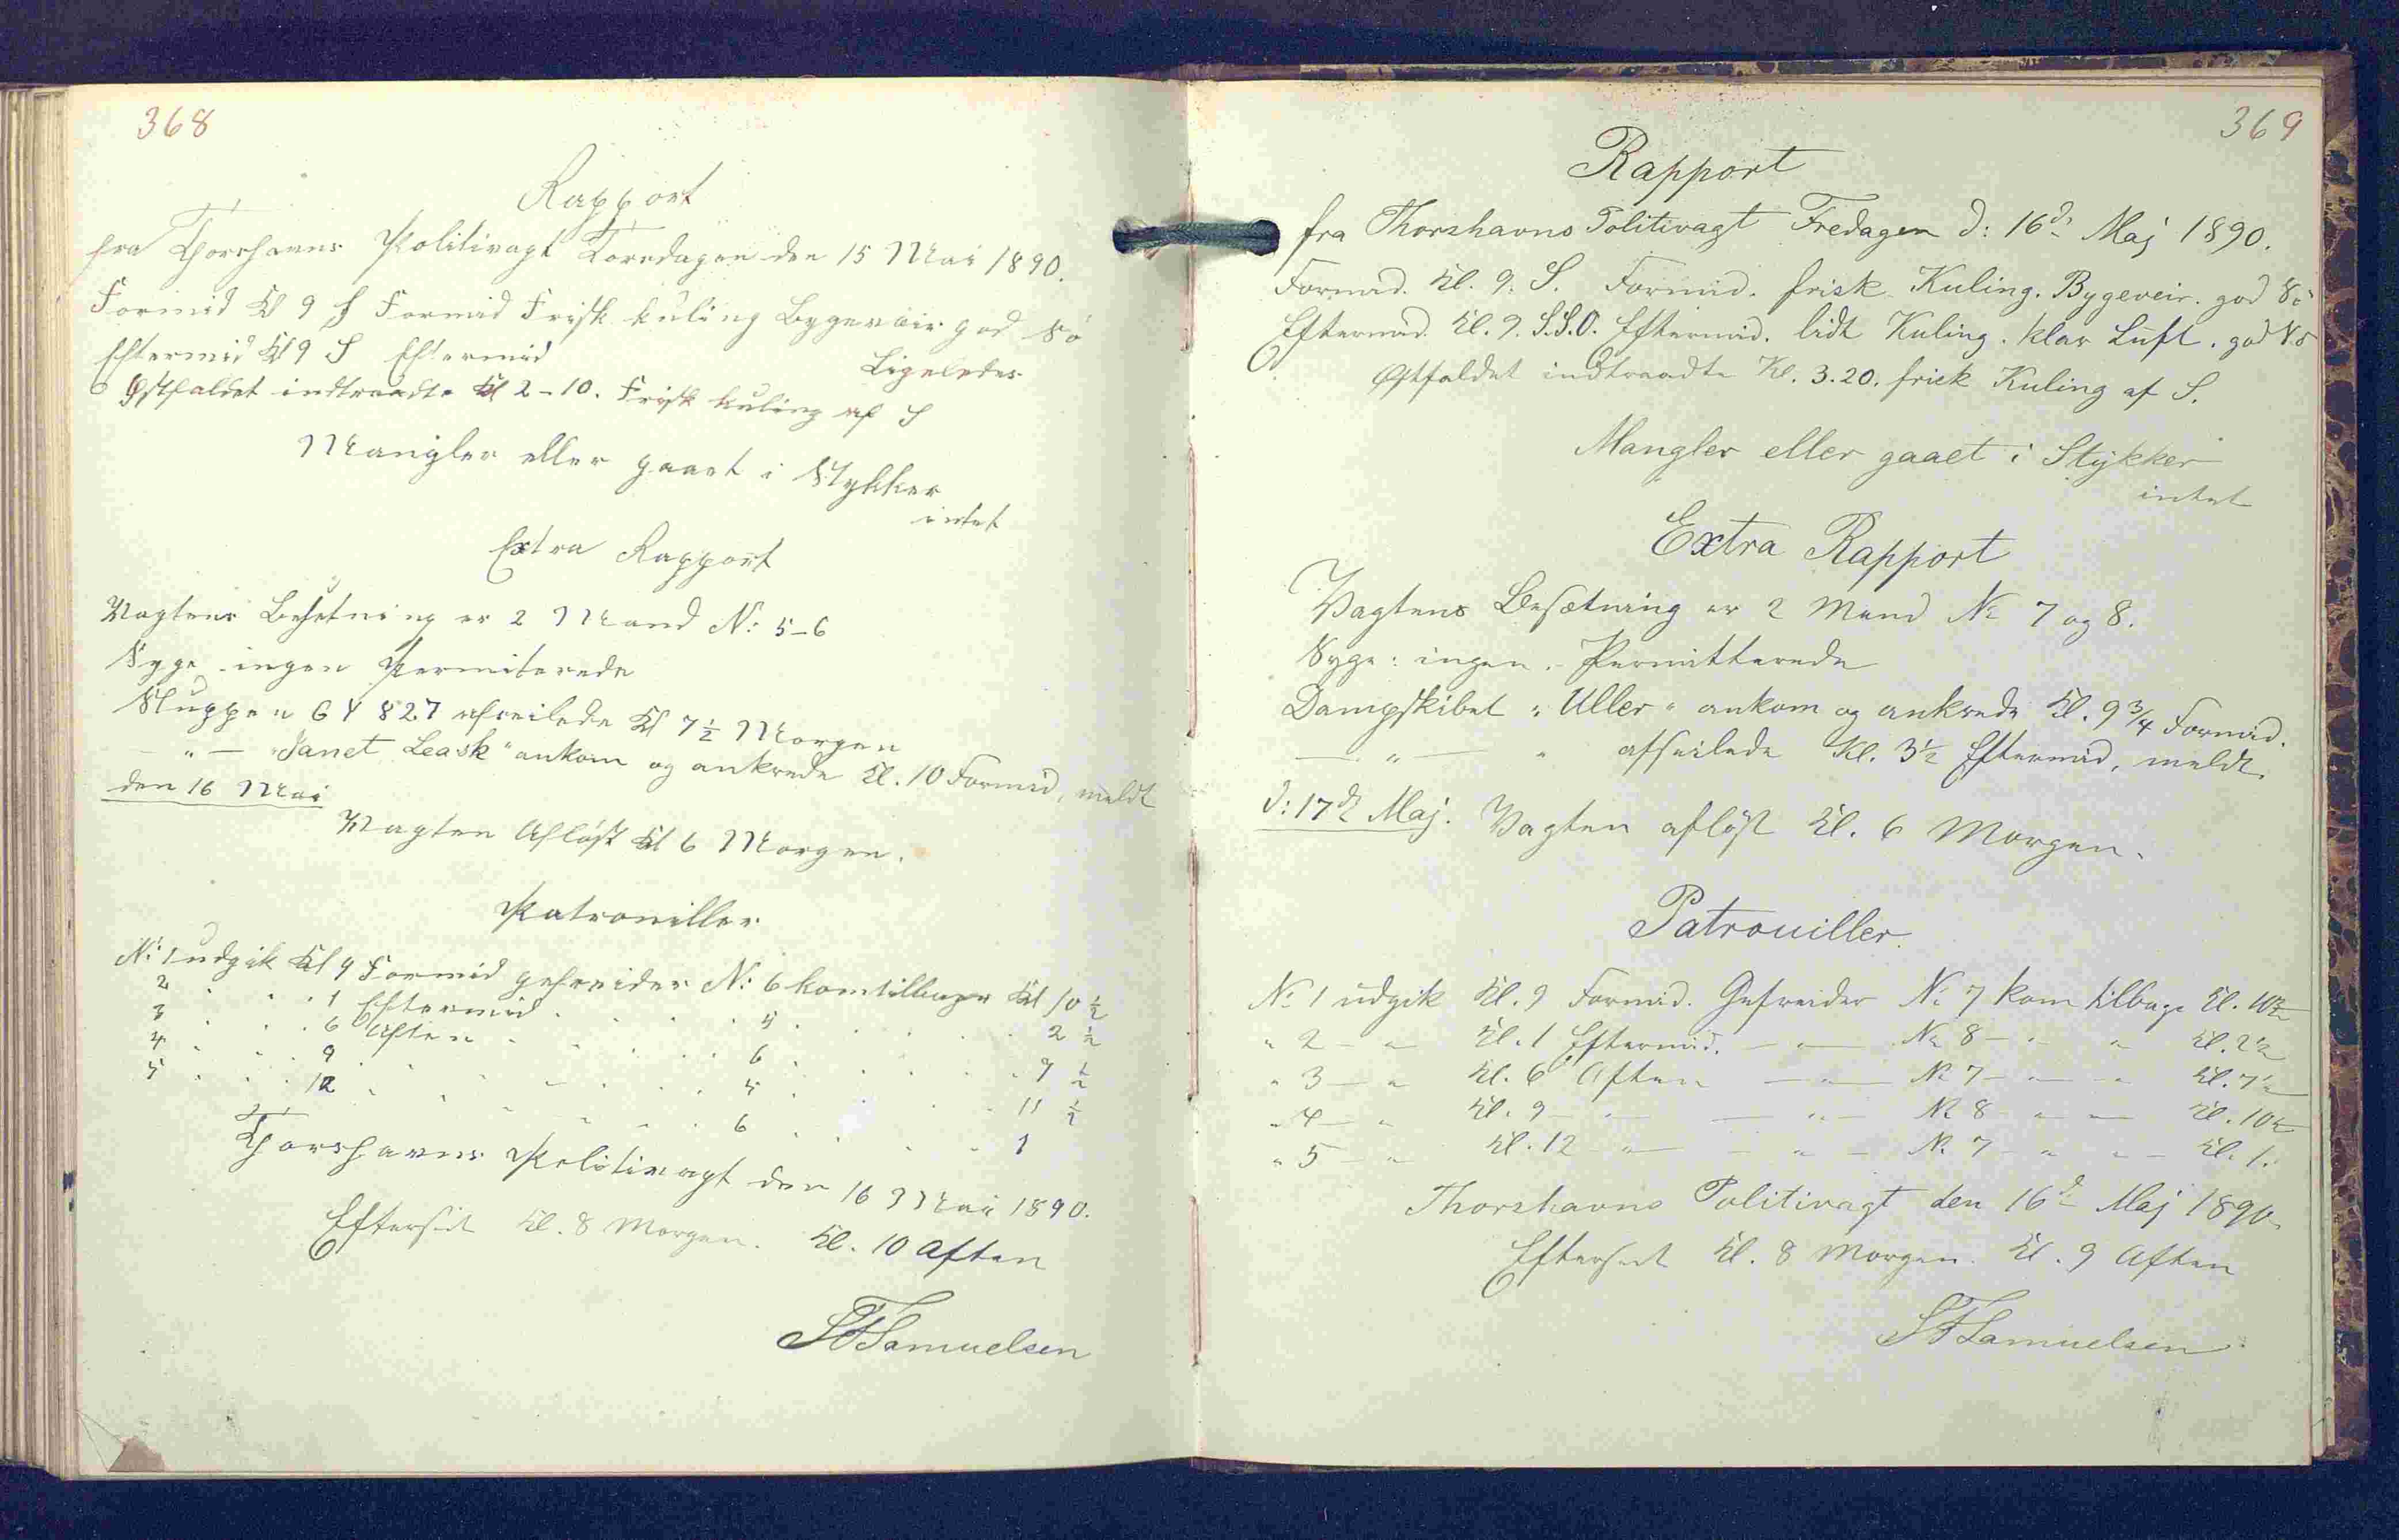 368
Rapport
fra Thorshavns Politivagt Torsdagen den 15 Mai 1890.
Formid Kl 9 S Formid Frisk kuling Bygeveir god Sö
Eftermid Kl 9 S Eftermid Ligeledes
Østfaldet indtraadte Kl 2-10. Frisk kuling af S
Mangler eller gaaet i Stykker
intet
Extra Rapport
Vagtens Besetning er 2 Mand N: 5-6
Syge ingen Permiterede
Sluppen GY 827 afseilede Kl 7½ Morgen
— " — "Janet Leask" ankom og ankrede Kl. 10 Formid, meldt
den 16 Mai
Vagten Afløst Kl 6 Morgen.
Patrouiller
N: 1 udgik Kl 9 Formid gefreider N: 6 kom tilbage Kl 10½
2 " " " 1 Eftermid " " " 5 " " " 2½
3 " " " 6 Aften " " " 6 " " " 7½
4 " " " 9 " " " " 5 " " " 11½
5 " " " 12 " " " " 6 " " " 1
Thorshavns Politivagt den 16 Mai 1890.
Efterseet Kl. 8 Morgen. Kl. 10 Aften
Samuelsen
369
Rapport
fra Thorshavns Politivagt Fredagen d: 16d. Maj 1890.
Formid. Kl. 9. S. Formid. frisk Kuling. Bygeveir. god Sö
Eftermid. Kl. 9. S.S.O. Eftermid. lidt Kuling. klar Luft. god Sö
Østfaldet indtraadte Kl. 3.20. frisk Kuling af S.
Mangler eller gaaet i Stykker
intet
Extra Rapport
Vagtens Besætning er 2 Mand No 7 og 8.
Syge: ingen. Permitterede
Dampskibet "Uller" ankom og ankrede Kl. 9¾ Formid.
— " — " afseilede Kl. 3½ Eftermid, meldt.
d: 17de Maj. Vagten afløst Kl. 6 Morgen.
Patrouiller.
No 1 udgik Kl. 9 Formid. Gefreider No 7 kom tilbage Kl. 10½
" 2 — " Kl. 1 Eftermid. — " — No 8 — " — " Kl. 2½
" 3 — " Kl. 6 Aften — " — No 7 — " — " Kl. 7½
" 4 — " Kl. 9 — " — — " — No 8 — " — Kl. 10½
" 5 — " Kl. 12 — " — — " — No 7 — " — " — Kl. 1.
Thorshavns Politivagt den 16d. Maj 1890.
Efterseet Kl. 8 Morgen. Kl. 9 Aften
Samuelsen